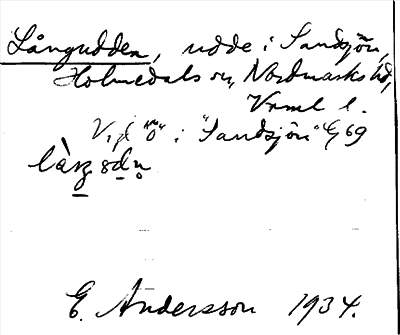 Långudden, udde i Sandsjön,
Holmedals sn, Nordmarks hd,
Vrml l.
Vid "ö" i "Sandsjön" G 69
E. Andersson 1934.